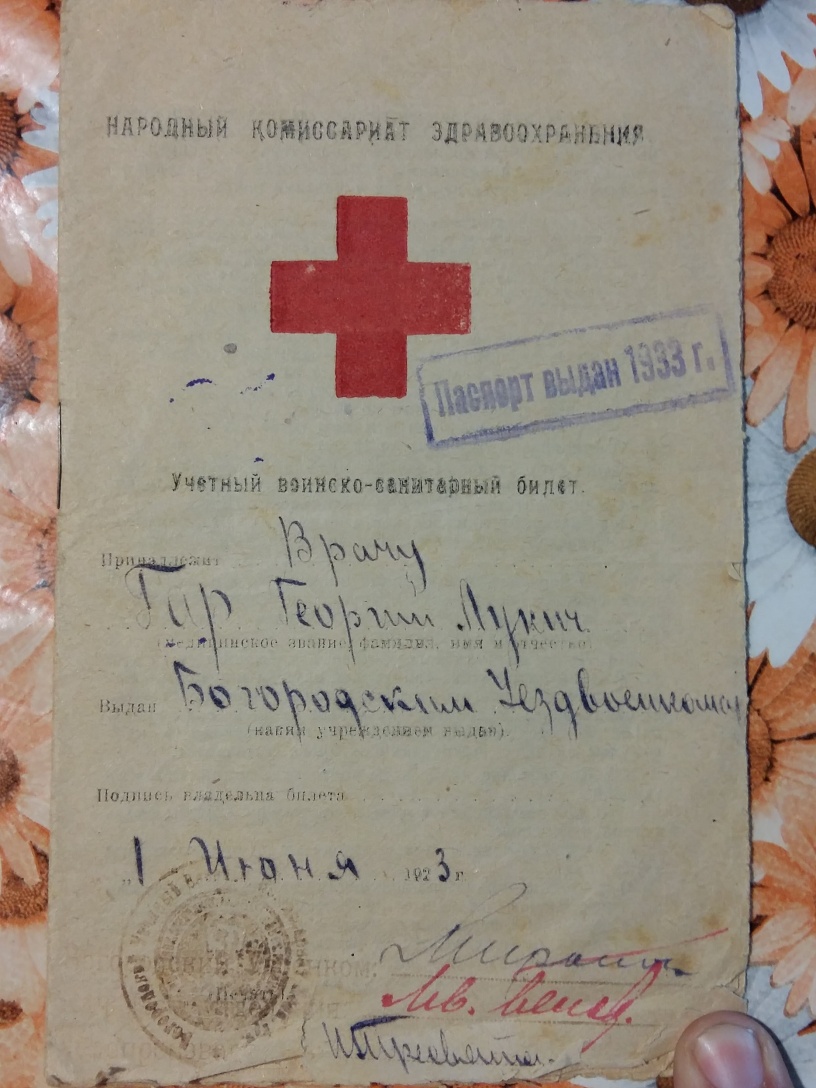 НАРОДНЫЙ КОМИССАРИАТ ЗДРАВООХРАНЕНИЯ
Паспорт выдан 1933 г.
Учетный воинско-санитарный билет.
Принадлежит Врачу
Гар Георгий Лукич
(медицинское звание, фамилия, имя и отчество)
Выдан Богородским Уездвоенкомат
(каким учреждением выдан).
Подпись владельца билета
„1 Июня 1923 г